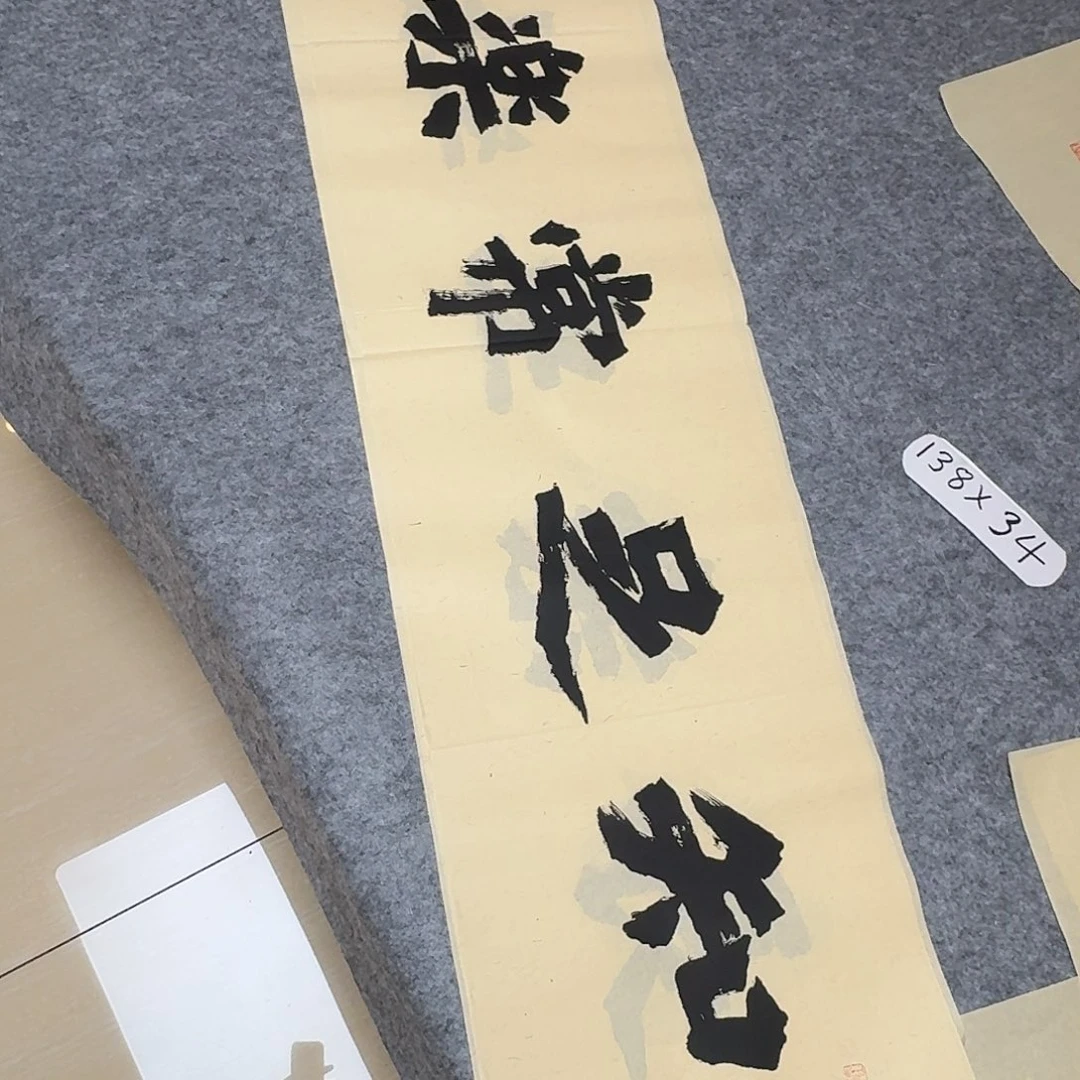 知足常楽
138×34